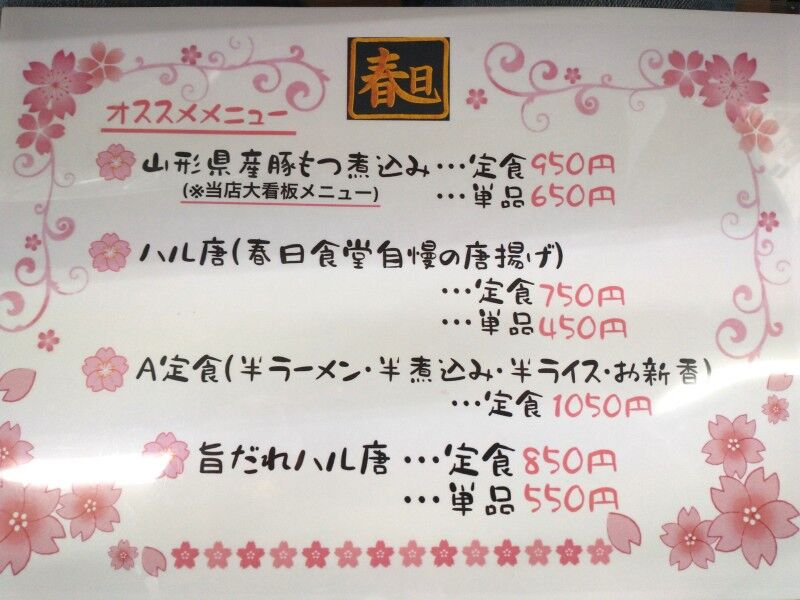 春日
オススメメニュー
山形県産豚もつ煮込み…定食950円
(※当店大看板メニュー) …単品650円
ハル唐(春日食堂自慢の唐揚げ)
…定食750円
…単品450円
A定食(半ラーメン・半煮込み・半ライス・お新香)
…定食1050円
旨だれハル唐…定食850円
…単品550円